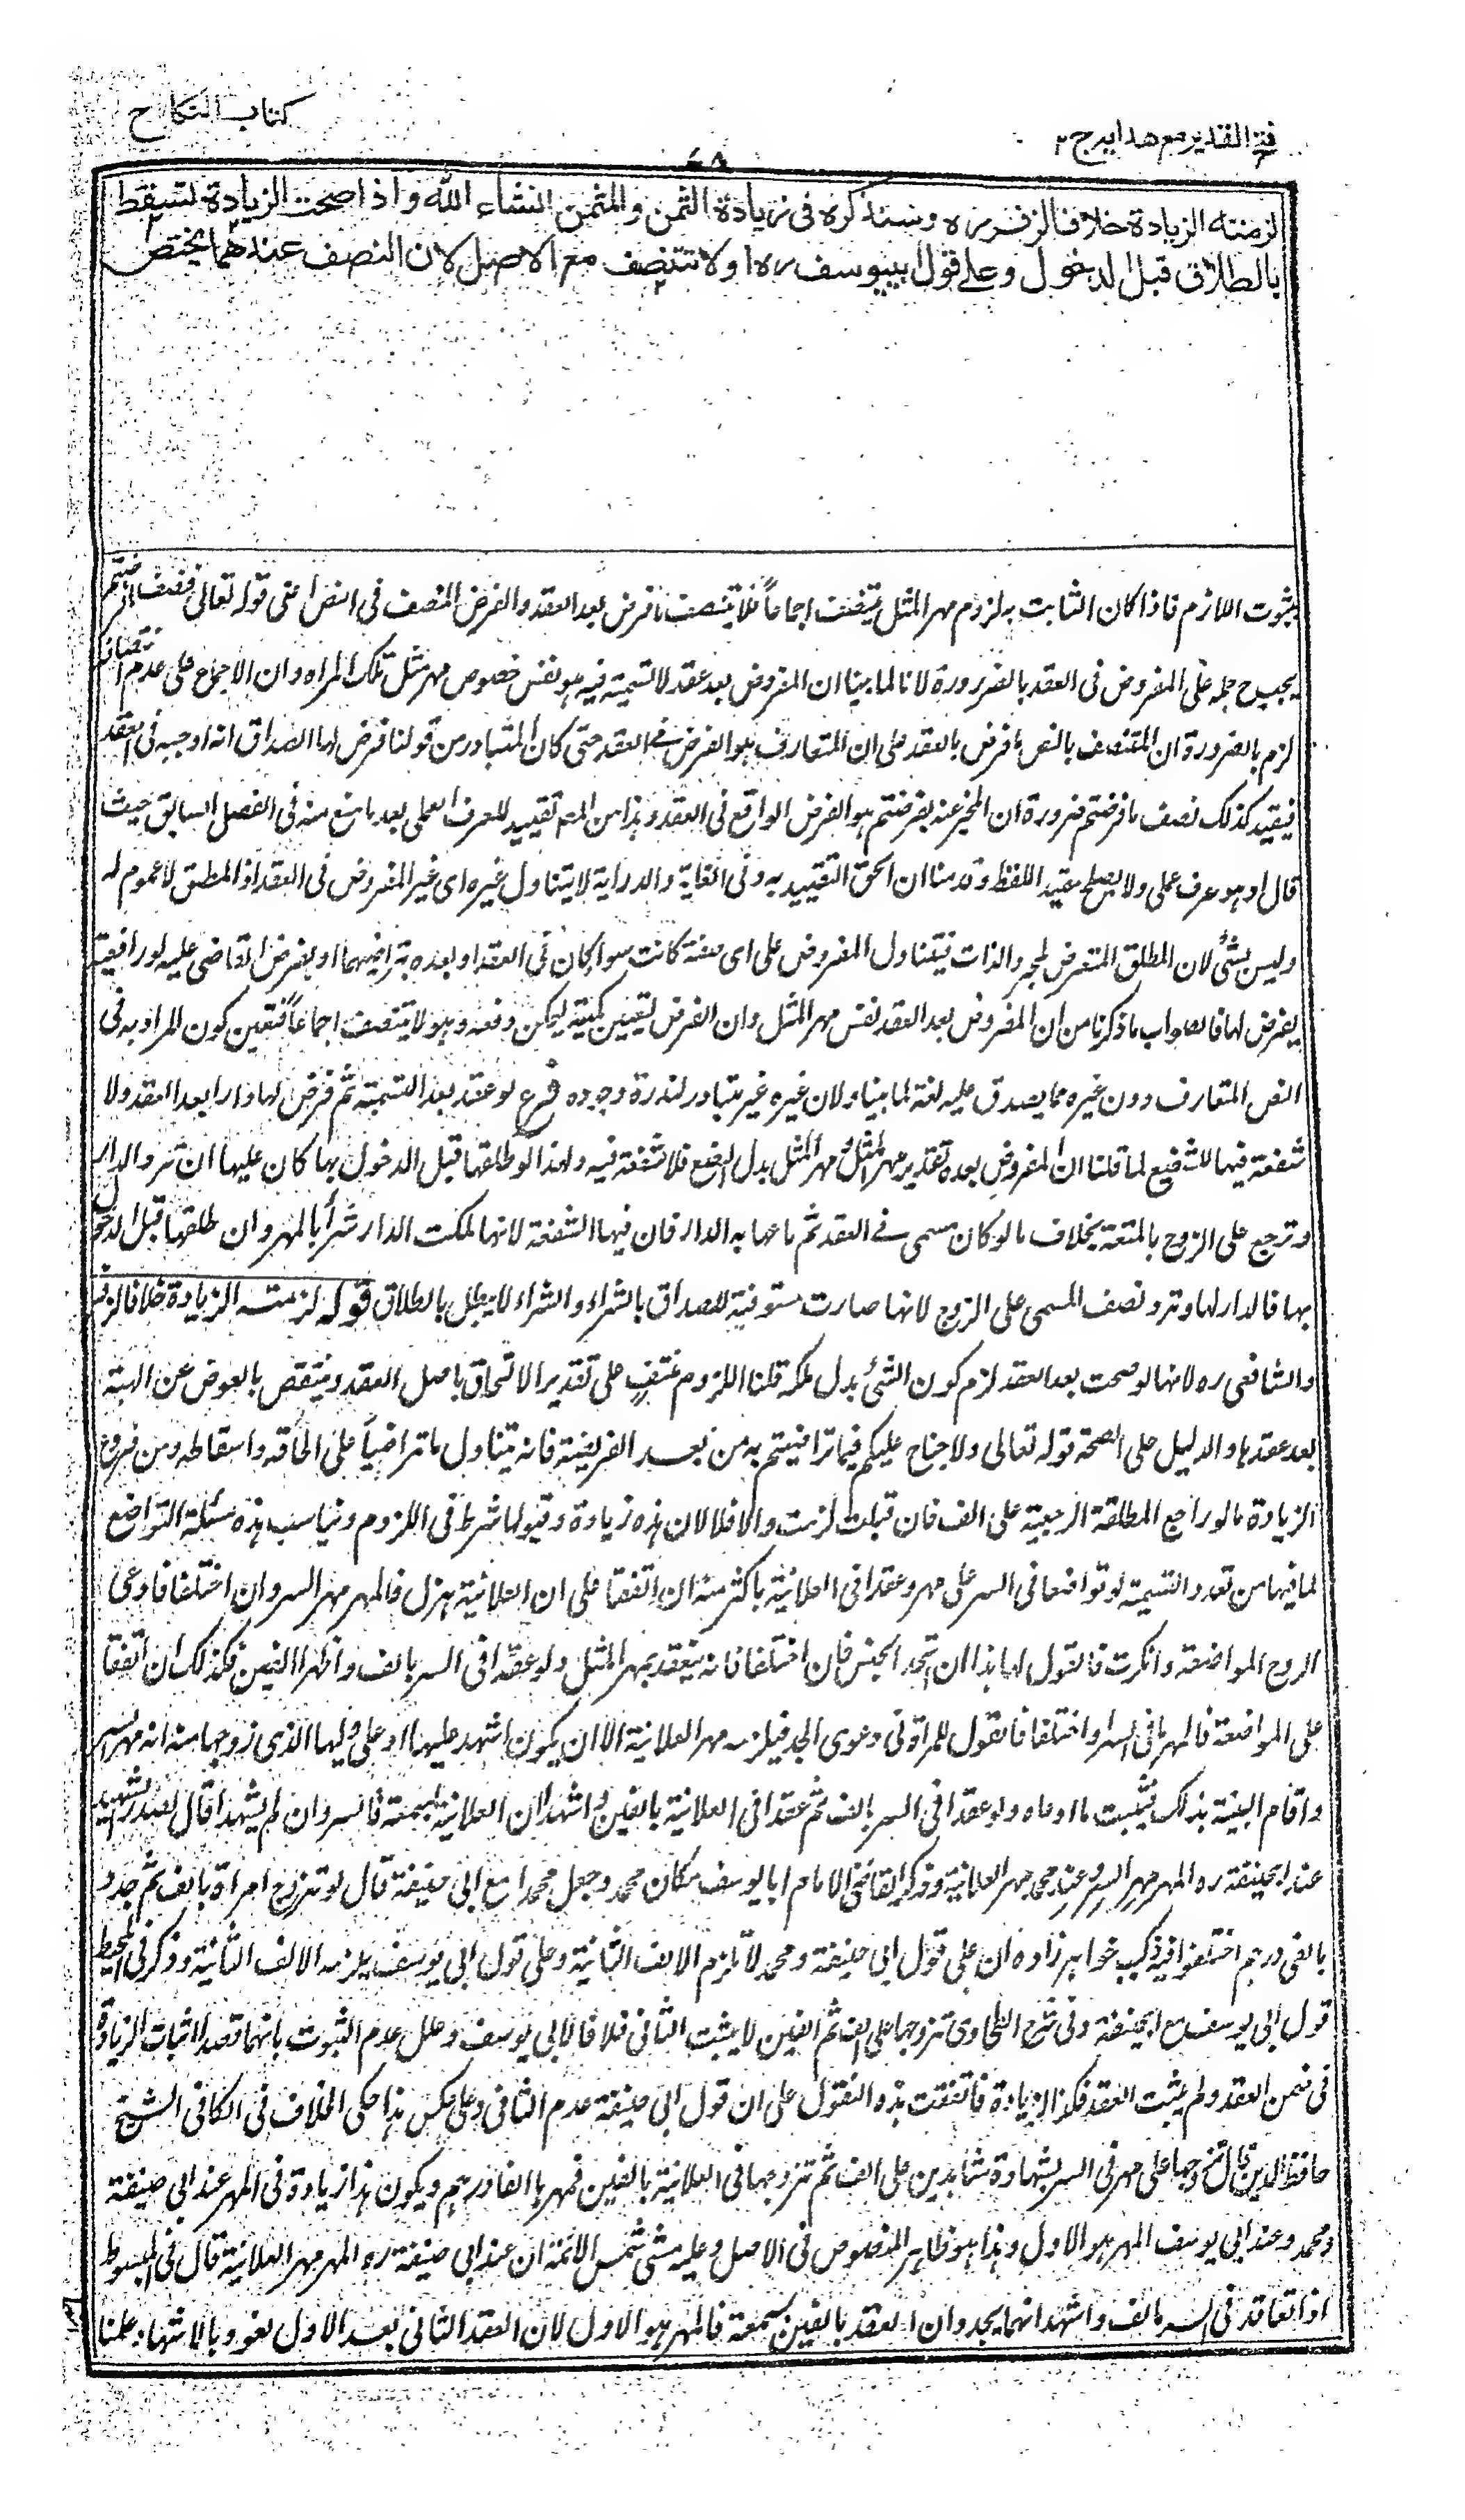 فتح القدير مع هدايه ج ٢
٤٨
كتاب النكاح
لزمته الزيادة خلافا لزفر ره وسنذكره فى زيادة الثمن والمثمن انشاء الله واذا صحت الزيادة تسقط
بالطلاق قبل الدخول وعلى قول ابييوسف ره اولا تتنصف مع الاصل لان النصف عندهما يختص
بثبوت اللازم فاذا كان الثابت به لزوم مهر المثل يتنصف اجماعاً فلا يتنصف ما فرض بعد العقد والفرض المنصف فى النص اعنى قوله تعالى فنصف ما فرضتم
يجب حمله على المفروض فى العقد بالضرورة لانا لما بينا ان المفروض بعد عقد لا تسمية فيه هو نفس خصوص مهر مثل تلك المراه وان الاجماع على عدم انتصافه
لزم بالضرورة ان المتنصف بالنص ما فرض بالعقد على ان المتعارف هو الفرض فى العقد حتى كان المتبادر من قولنا فرض لها الصداق انه اوجبه فى العقد
فيقيد كذلك نصف ما فرضتم ضرورة ان المخبر عنه بفرضتم هو الفرض الواقع فى العقد وهذا من المص تقييد للعرف العملى بعد ما منع منه فى الفصل السابق حيث
قال او هو عرف عملى ولا يصلح مقيد اللفظ وقدمنا ان الحق التقييد به وفى الغاية والدراية لا يتناول غيره اى غير المفروض فى العقد اذ المطلق لا عموم له
وليس بشئ لان المطلق المتعرض لمجرد الذات فيتناول المفروض على اى صفة كانت سواء كان فى العقد او بعده بتراضيهما او بفرض القاضى عليه لو رافعته
ليفرض لها فالصواب ما ذكرنا من ان المفروض بعد العقد نفس مهر المثل وان الفرض لتعيين كميته ليمكن دفعه وهو لا يتنصف اجماعاً فتعين كون المراد به فى
النص المتعارف دون غيره مما يصدق عليه لغة لما بينا ولان غيره غير متبادر لندرة وجوده فرع لو عقد بعد التسمية ثم فرض لها دارا بعد العقد ولا
شفعة فيها للشفيع لما قلنا ان المفروض بعده تقدير مهر المثل ومهر المثل بدل البضع فلا شفعة فيه ولهذا لو طلقها قبل الدخول بها كان عليها ان ترد الدار
وترجع على الزوج بالمتعة بخلاف ما لو كان مسمى فى العقد ثم باعها به الدار فان فيها الشفعة لانها ملكت الدار شرأ بالمهر وان طلقها قبل الدخول
بها فالدار لها وترد نصف المسمى على الزوج لانها صارت مستوفية للصداق بالشراء والشراء لا يبطل بالطلاق قوله لزمته الزيادة خلافا لزفر
والشافعى ره لانها لو صحت بعد العقد لزم كون الشئ بدل ملكه قلنا اللزوم منتف على تقدير الالتحاق باصل العقد وينتقص بالعوض عن الهبة
بعد عقدها والدليل على الصحة قوله تعالى ولا جناح عليكم فيما تراضيتم به من بعد الفريضة فانه يتناول ما تراضيا على الحاقه واسقاطه ومن فروع
الزيادة ما لو راجع المطلقة الرجعية على الف فان قبلت لزمت والا فلا لان هذه زيادة وقبولها شرط فى اللزوم ويناسب هذه مسئلة التواضع
لما فيها من تعدد التسمية لو تواضعا فى السر على مهر وعقدا فى العلانية باكثر منه ان اتفقا على ان العلانية هزل فالمهر مهر السر وان اختلفا فادعى
الزوج المواضعة وانكرت فالقول لها هذا ان اتحد الجنس فان اختلفا فانه ينعقد بمهر المثل ولو عقدا فى السر بالف واظهرا الفين فكذلك ان اتفقا
على المواضعة فالمهر ما فى السر او اختلفا فالقول للمراة فى دعوى الجد فيلزمه مهر العلانية الا ان يكون اشهد عليها او على وليها الذى زوجها منه انه مهر السر
واقام البينة بذلك فيثبت ما ادعاه ولو عقدا فى السر بالف ثم عقدا فى العلانية بالفين واشهدا ان العلانية سمعة فالسر وان لم يشهدا قال الصدر الشهيد
عند ابيحنيفة ره المهر مهر السر وعند محمد مهر العلانية وذكر القاضى الامام ابا يوسف مكان محمد وجعل محمدا مع ابى حنيفة قال لو تزوج امراة بالف ثم جدد
بالفى درهم اختلفوا فيه ذكر خواهر زاده ان على قول ابى حنيفة ومحمد لا تلزم الالف الثانية وعلى قول ابى يوسف يلزمه الالف الثانية وذكر فى المحيط
قول ابى يوسف مع ابيحنيفة وفى شرح الطحاوى تزوجها على الف ثم الفين لا يثبت الثانى خلافا لابى يوسف وعلل عدم الثبوت بانهما قصدا اثبات الزيادة
فى ضمن العقد ولم يثبت العقد فكذا الزيادة فاتفقت هذه النقول على ان قول ابى حنيفة عدم الثانى وعلى عكس هذا حكى الخلاف فى الكافى الشيخ
حافظ الدين قال تزوجها على مهر فى السر بشهادة شاهدين على الف ثم تزوجها فى العلانية بالفين فمهرها الفا درهم ويكون هذا زيادة فى المهر عند ابى حنيفة
ومحمد وعند ابى يوسف المهر هو الاول وهذا هو ظاهر المنصوص فى الاصل وعليه مشى شمس الائمة ان عند ابى حنيفة ره المهر مهر العلانية قال فى المبسوط
اذا تعاقد فى السر بالف واشهد انهما يجددان العقد بالفين سمعة فالمهر هو الاول لان العقد الثانى بعد الاول لغو وبالاشهاد علمنا